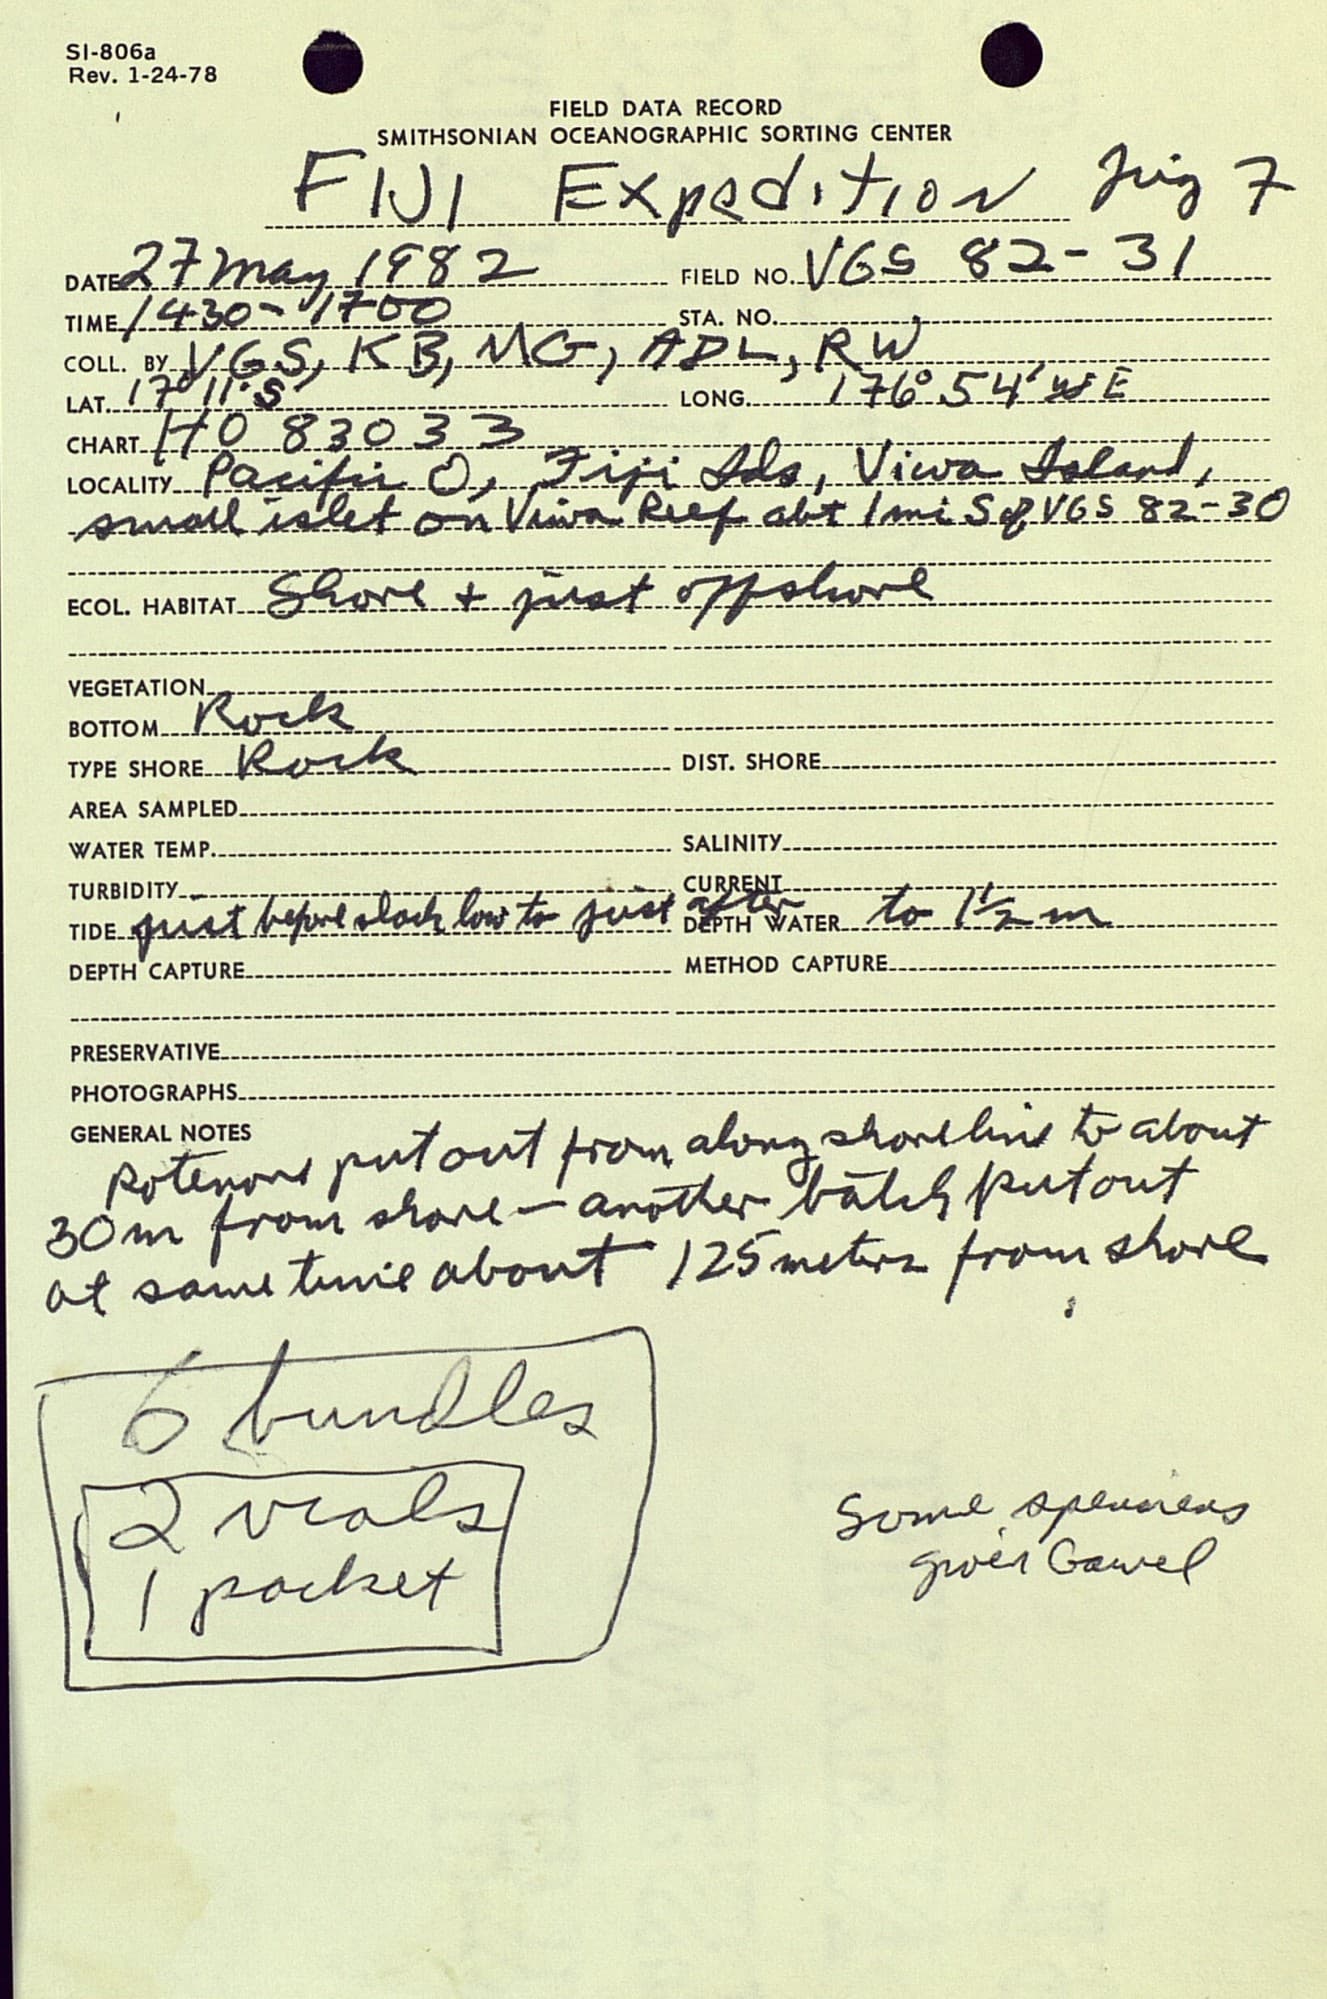 SI-806a
Rev. 1-24-78
FIELD DATA RECORD
SMITHSONIAN OCEANOGRAPHIC SORTING CENTER
FIJI Expedition 7
DATE 27 May 1982 FIELD NO. VGS 82-31
TIME 1430-1700 STA. NO.
COLL. BY VGS, KB, MG, ADL, RW
LAT. 17° 11' S LONG. 176° 54' W E
CHART HO 83033
LOCALITY Pacific O, Fiji Ids, Viwa Island,
small islet on Viwa Reef abt 1 mi S of VGS 82-30
ECOL. HABITAT Shore + just offshore
VEGETATION
BOTTOM Rock
TYPE SHORE Rock DIST. SHORE
AREA SAMPLED
WATER TEMP. SALINITY
TURBIDITY CURRENT
TIDE just before slack low to just after DEPTH WATER to 1 1/2 m
DEPTH CAPTURE METHOD CAPTURE
PRESERVATIVE
PHOTOGRAPHS
GENERAL NOTES
Rotenone put out from along shoreline to about
30m from shore - another batch put out
at same time about 125 meters from shore
6 bundles
2 vials
1 packet
Some specimens
given Gawel